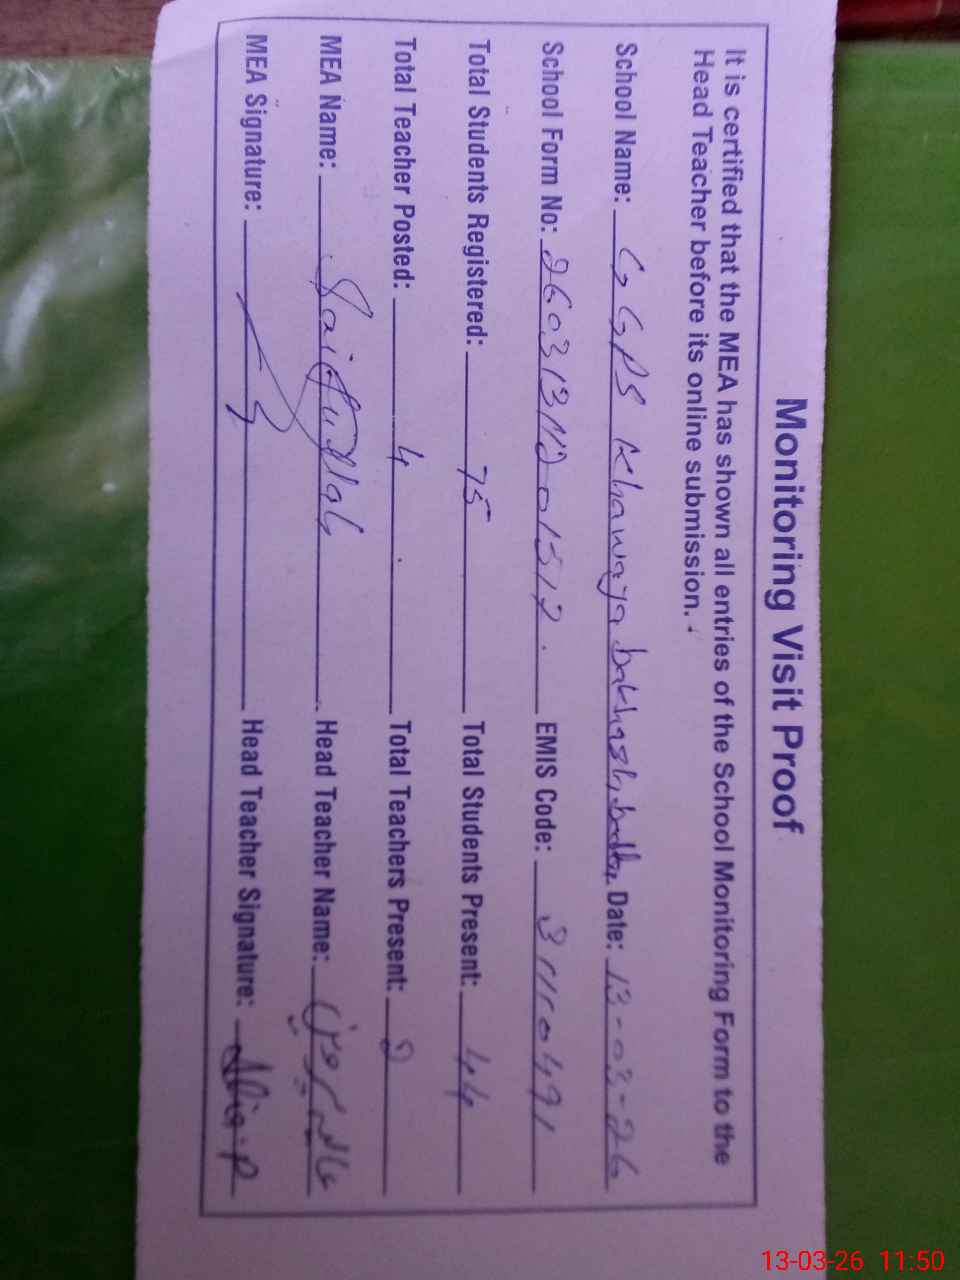 Monitoring Visit Proof
It is certified that the MEA has shown all entries of the School Monitoring Form to the
Head Teacher before its online submission.
School Name: GGPS Khawaja bakhash Date: 13-03-26
School Form No: EMIS Code: 31110491
Total Students Registered: 75 Total Students Present: 44
Total Teacher Posted: 4 Total Teachers Present: 2
MEA Name: Saifullah Head Teacher Name:
MEA Signature: Head Teacher Signature:
13-03-26 11:50